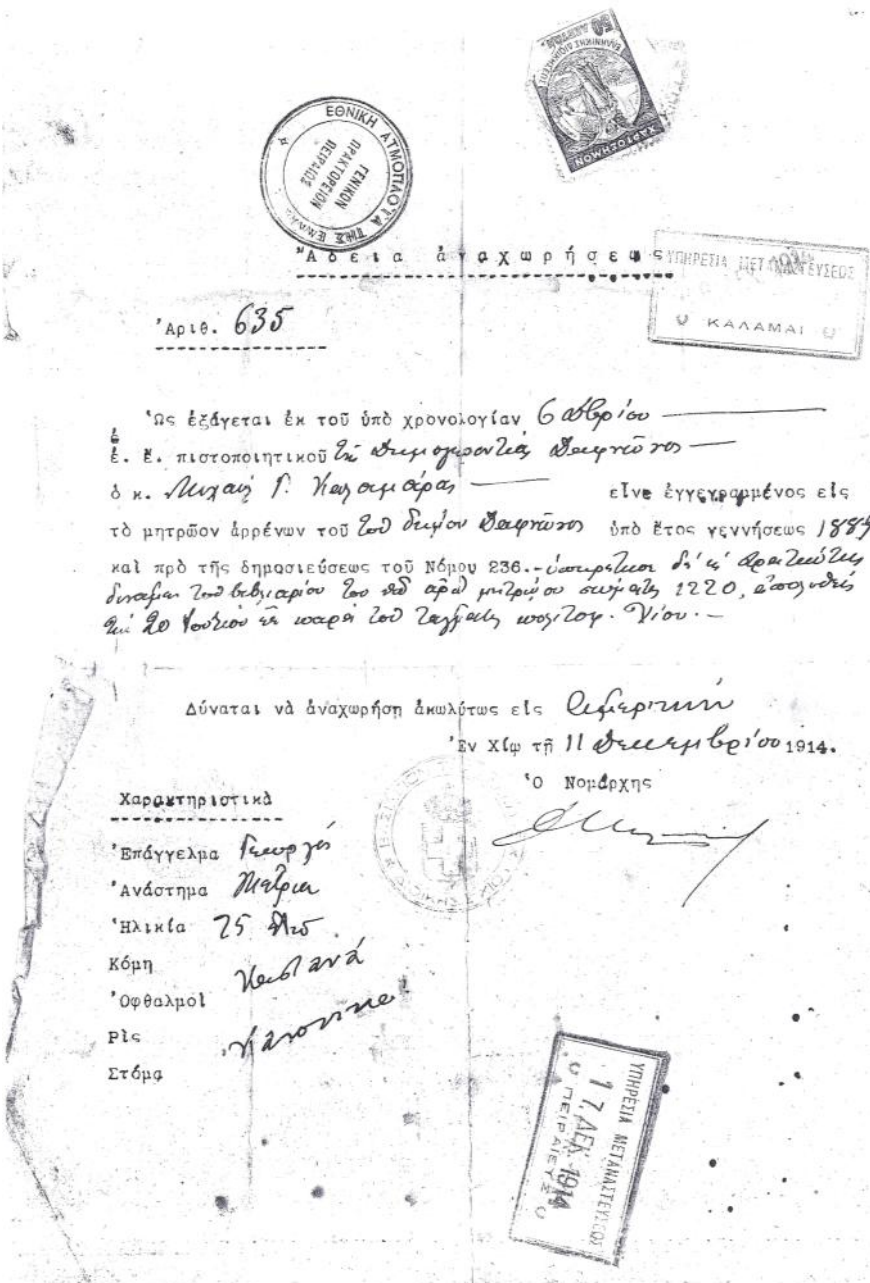 50 ΛΕΠΤΩΝ
ΕΛΛΗΝΙΚΗ ΔΙΟΙΚΗΣΙΣ
ΧΑΡΤΟΣΗΜΟΝ
ΕΘΝΙΚΗ ΑΤΜΟΠΛΟΪΑ ΤΗΣ
ΓΕΝΙΚΟΝ
ΠΡΑΚΤΟΡΕΙΟΝ
ΠΕΙΡΑΙΩΣ
Ἄδεια ἀναχωρήσεως
ΥΠΗΡΕΣΙΑ ΜΕΤΑΝΑΣΤΕΥΣΕΩΣ
ΚΑΛΑΜΑΙ
Ἀριθ. 635
Ὡς ἐξάγεται ἐκ τοῦ ὑπὸ χρονολογίαν 6
ἐ. ἔ. πιστοποιητικοῦ Δημογεροντίας Δαφνῶνος
ὁ κ. Μιχαὴλ Γ. εἶνε ἐγγεγραμμένος εἰς
τὸ μητρῶον ἀρρένων τοῦ τοῦ δήμου Δαφνῶνος ὑπὸ ἔτος γεννήσεως 1889
καὶ πρὸ τῆς δημοσιεύσεως τοῦ Νόμου 236.-
δυνάμει τοῦ βιβλιαρίου τοῦ ὑπ' ἀριθ μητρώου 1220, ἀπολυθεὶς
20 παρὰ τοῦ
Δύναται νὰ ἀναχωρήσῃ ἀκωλύτως εἰς Ἀμερικὴν
Ἐν Χίῳ τῇ 11 Δεκεμβρίου 1914.
Ὁ Νομάρχης
Χαρακτηριστικὰ
Ἐπάγγελμα Γεωργὸς
Ἀνάστημα Μέτριον
Ἡλικία 25 ἐτῶν
Κόμη
Καστανά
Ὀφθαλμοὶ
Ρὶς
Κανονικὰ
Στόμα
ΥΠΗΡΕΣΙΑ ΜΕΤΑΝΑΣΤΕΥΣΕΩΣ
17. ΔΕΚ. 1914
ΠΕΙΡΑΙΕΥΣ